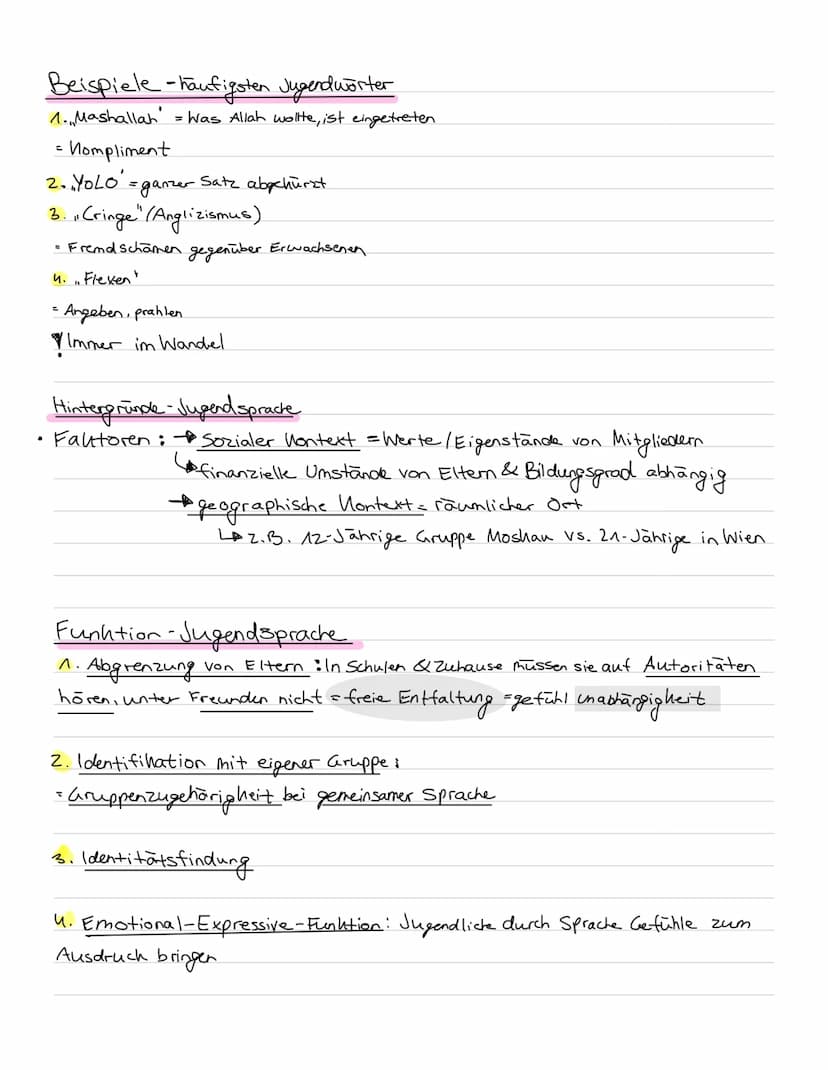 Beispiele - häufigsten Jugendwörter
1. „Mashallah" = Was Allah wollte, ist eingetreten
= Kompliment
2. „YOLO" = ganzer Satz abgekürzt
3. „Cringe" (Anglizismus)
= Fremdschämen gegenüber Erwachsenen
4. „Flexen"
= Angeben, prahlen
! Immer im Wandel
Hintergründe - Jugendsprache
• Faktoren: → Sozialer Kontext = Werte / Eigenstände von Mitgliedern
↳ finanzielle Umstände von Eltern & Bildungsgrad abhängig
→ geographische Kontext = räumlicher Ort
↳ z.B. 12-Jährige Gruppe Moskau vs. 21-Jährige in Wien
Funktion - Jugendsprache
1. Abgrenzung von Eltern: In Schulen & Zuhause müssen sie auf Autoritäten
hören, unter Freunden nicht = freie Entfaltung = gefühl Unabhängigkeit
2. Identifikation mit eigener Gruppe:
= Gruppenzugehörigkeit bei gemeinsamer Sprache
3. Identitätsfindung
4. Emotional-Expressive-Funktion: Jugendliche durch Sprache Gefühle zum
Ausdruck bringen